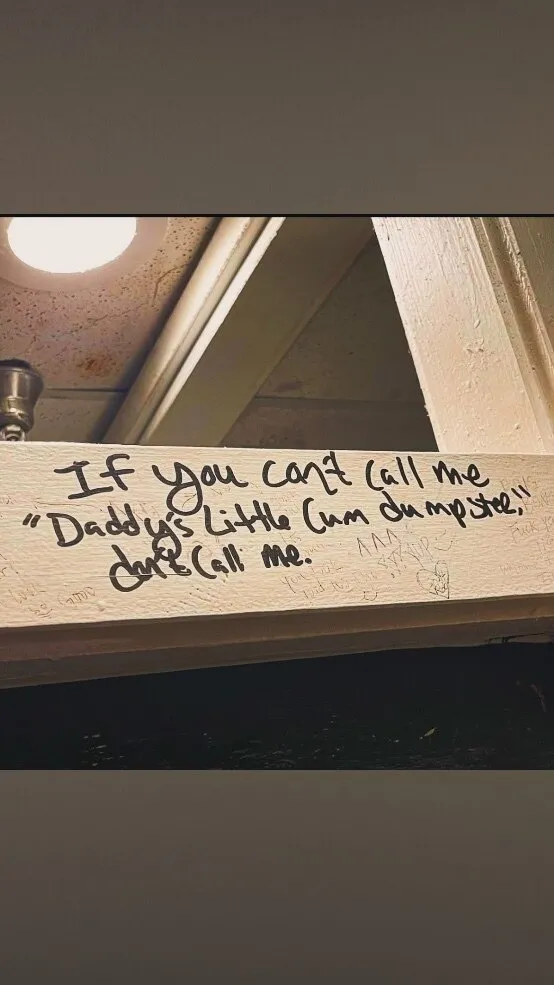 If you can't call me
"Daddy's Little Cum dumpster,"
don't Call me.